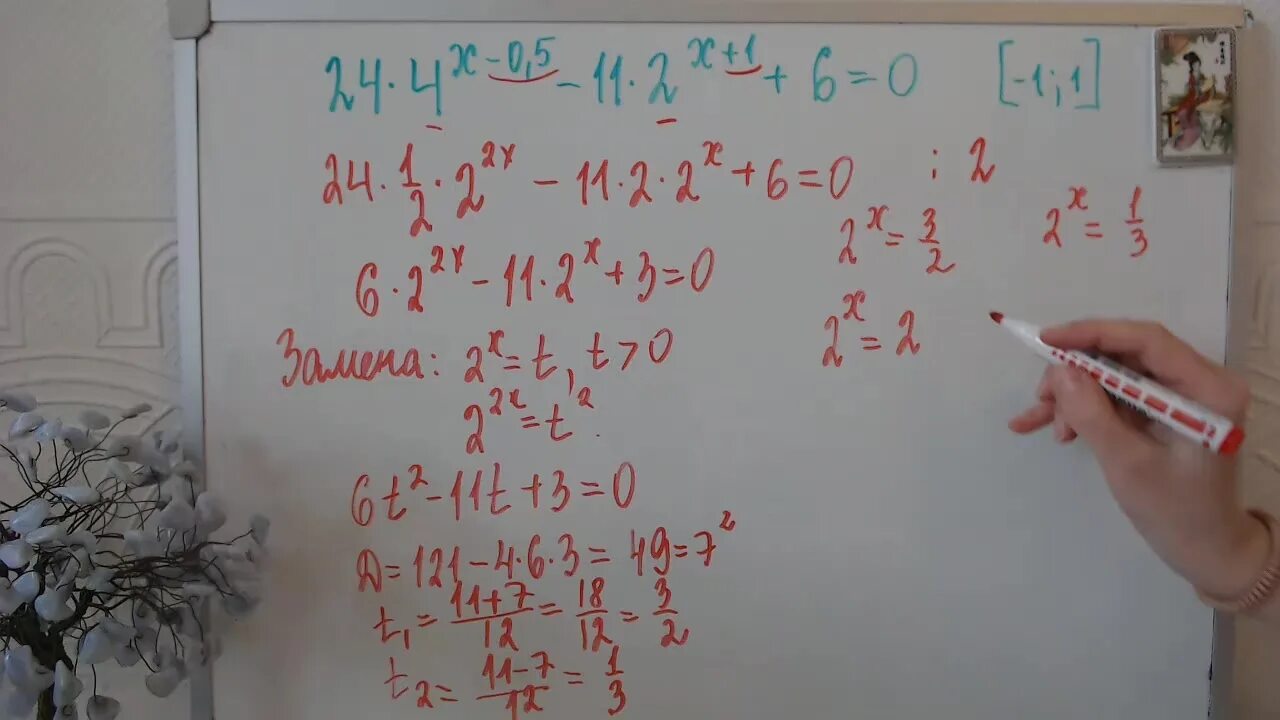 24·4^(x-0,5) - 11·2^(x+1) + 6 = 0 [-1;1]
24·1/2·2^(2x) - 11·2·2^x + 6 = 0 :2
6·2^(2x) - 11·2^x + 3 = 0
Замена: 2^x = t, t > 0
2^(2x) = t^2.
6t^2 - 11t + 3 = 0
Д = 121 - 4·6·3 = 49 = 7^2
t₁ = (11+7)/12 = 18/12 = 3/2
t₂ = (11-7)/12 = 1/3
2^x = 3/2 2^x = 1/3
2^x = 2